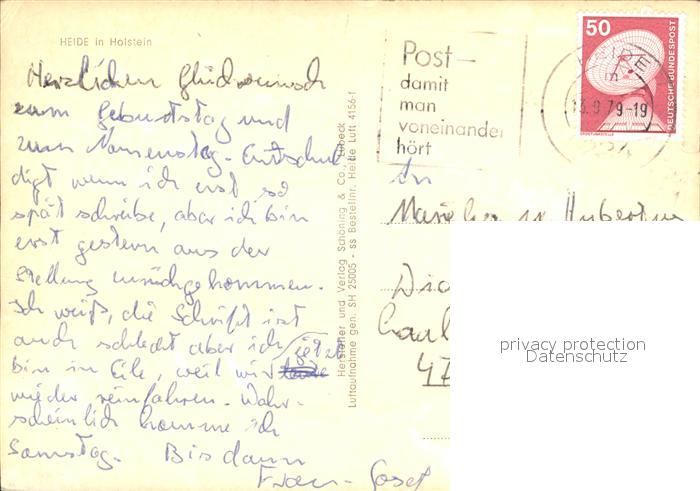 HEIDE in Holstein
Herzlichen Glückwunsch
zum Geburtstag und
zum Namenstag. Entschul
digt wenn ich erst so
spät schreibe, aber ich bin
erst gestern aus der
Stellung zurückgekommen.
Ich weiß, die Schrift ist
auch schlecht aber ich
bin in Eile, weil wir jetzt
wieder reinfahren. Wahr-
scheinlich komme ich
Samstag. Bis dann
Franz-Josef
Hersteller und Verlag Schöning & Co., Lübeck
Luftaufnahme gen. SH 25005 - ss Bestellnr. Heide Luft 4156-f
Post –
damit
man
voneinander
hört
50
DEUTSCHE BUNDESPOST
ERDEFUNKSTELLE
HEIDE
13.9.79-19
An
u. Hubertus
47
privacy protection
Datenschutz